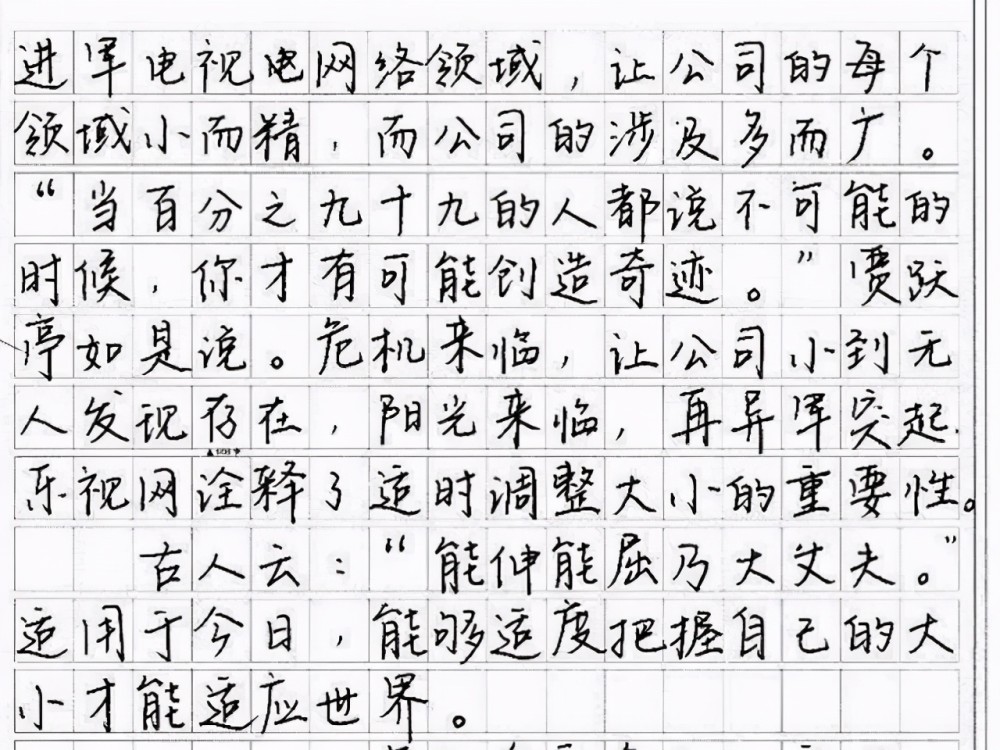 进军电视电网络领域，让公司的每个
领域小而精，而公司的涉及多而广。
“当百分之九十九的人都说不可能的
时候，你才有可能创造奇迹。”贾跃
亭如是说。危机来临，让公司小到无
人发现存在，阳光来临，再异军突起.
乐视网诠释了适时调整大小的重要性。
古人云：“能伸能屈乃大丈夫。”
适用于今日，能够适度把握自己的大
小才能适应世界。